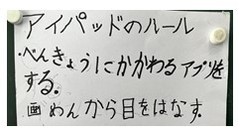 アイパッドのルール
・べんきょうにかかわるアプリを
する。
・画めんから目をはなす。